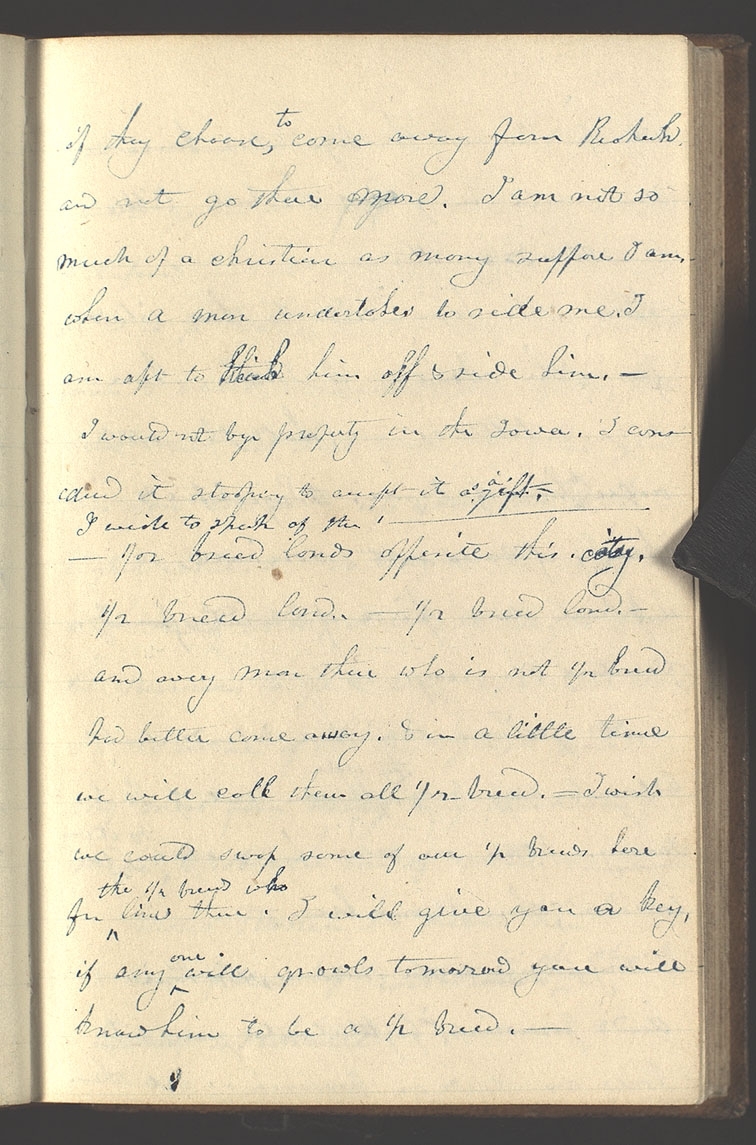 if they choose, to come away from Keokuk.
and not go there more. I am not so
much of a christian as many suppose I am,
when a man undertakes to ride me. I
am apt to kick him off & ride him. —
I would nt bye property in the Iowa. I cons
ide[r]d it stooping to accept it as a gift. —
I wish to speak of the
— 1/2 breed lands opposite this. city.
1/2 breed land. — 1/2 breed land. —
and every man there who is not 1/2 breed
had better come away. & in a little time
we will call them all 1/2 breed. — I wish
we could swop some of our 1/2 breeds here
the 1/2 breed who
for live there. I will give you a key,
if any one will growls tomorrow you will
know him to be a 1/2 breed. —